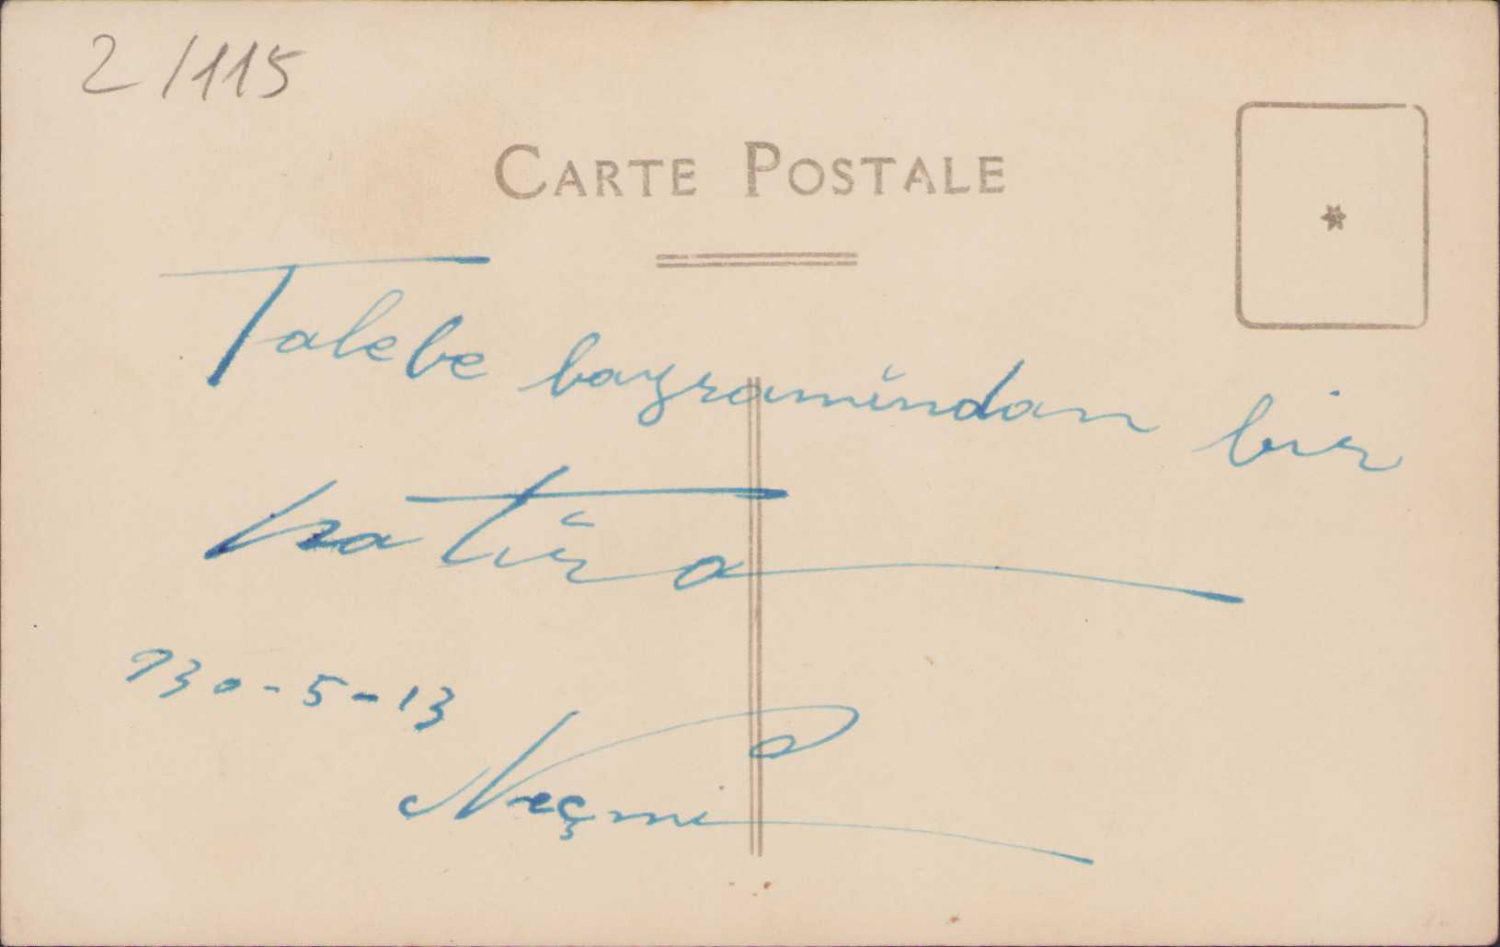 2/115
CARTE POSTALE
Talebe bayramından bir
hatıra
930-5-13
Neçmi